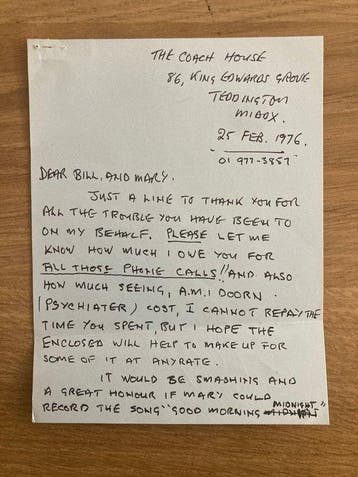 THE COACH HOUSE
86, KING EDWARDS GROVE
TEDDINGTON
MIDDX.
25 FEB. 1976.
01 977-3857
DEAR BILL, AND MARY.
JUST A LINE TO THANK YOU FOR
ALL THE TROUBLE YOU HAVE BEEN TO
ON MY BEHALF. PLEASE LET ME
KNOW HOW MUCH I OWE YOU FOR
ALL THOSE PHONE CALLS!! AND ALSO
HOW MUCH SEEING, A.M.I DOORN.
(PSYCHIATER) COST, I CANNOT REPAY THE
TIME YOU SPENT, BUT I HOPE THE
ENCLOSED WILL HELP TO MAKE UP FOR
SOME OF IT AT ANYRATE.
IT WOULD BE SMASHING AND
A GREAT HONOUR IF MARY COULD
RECORD THE SONG "GOOD MORNING MIDNIGHT"